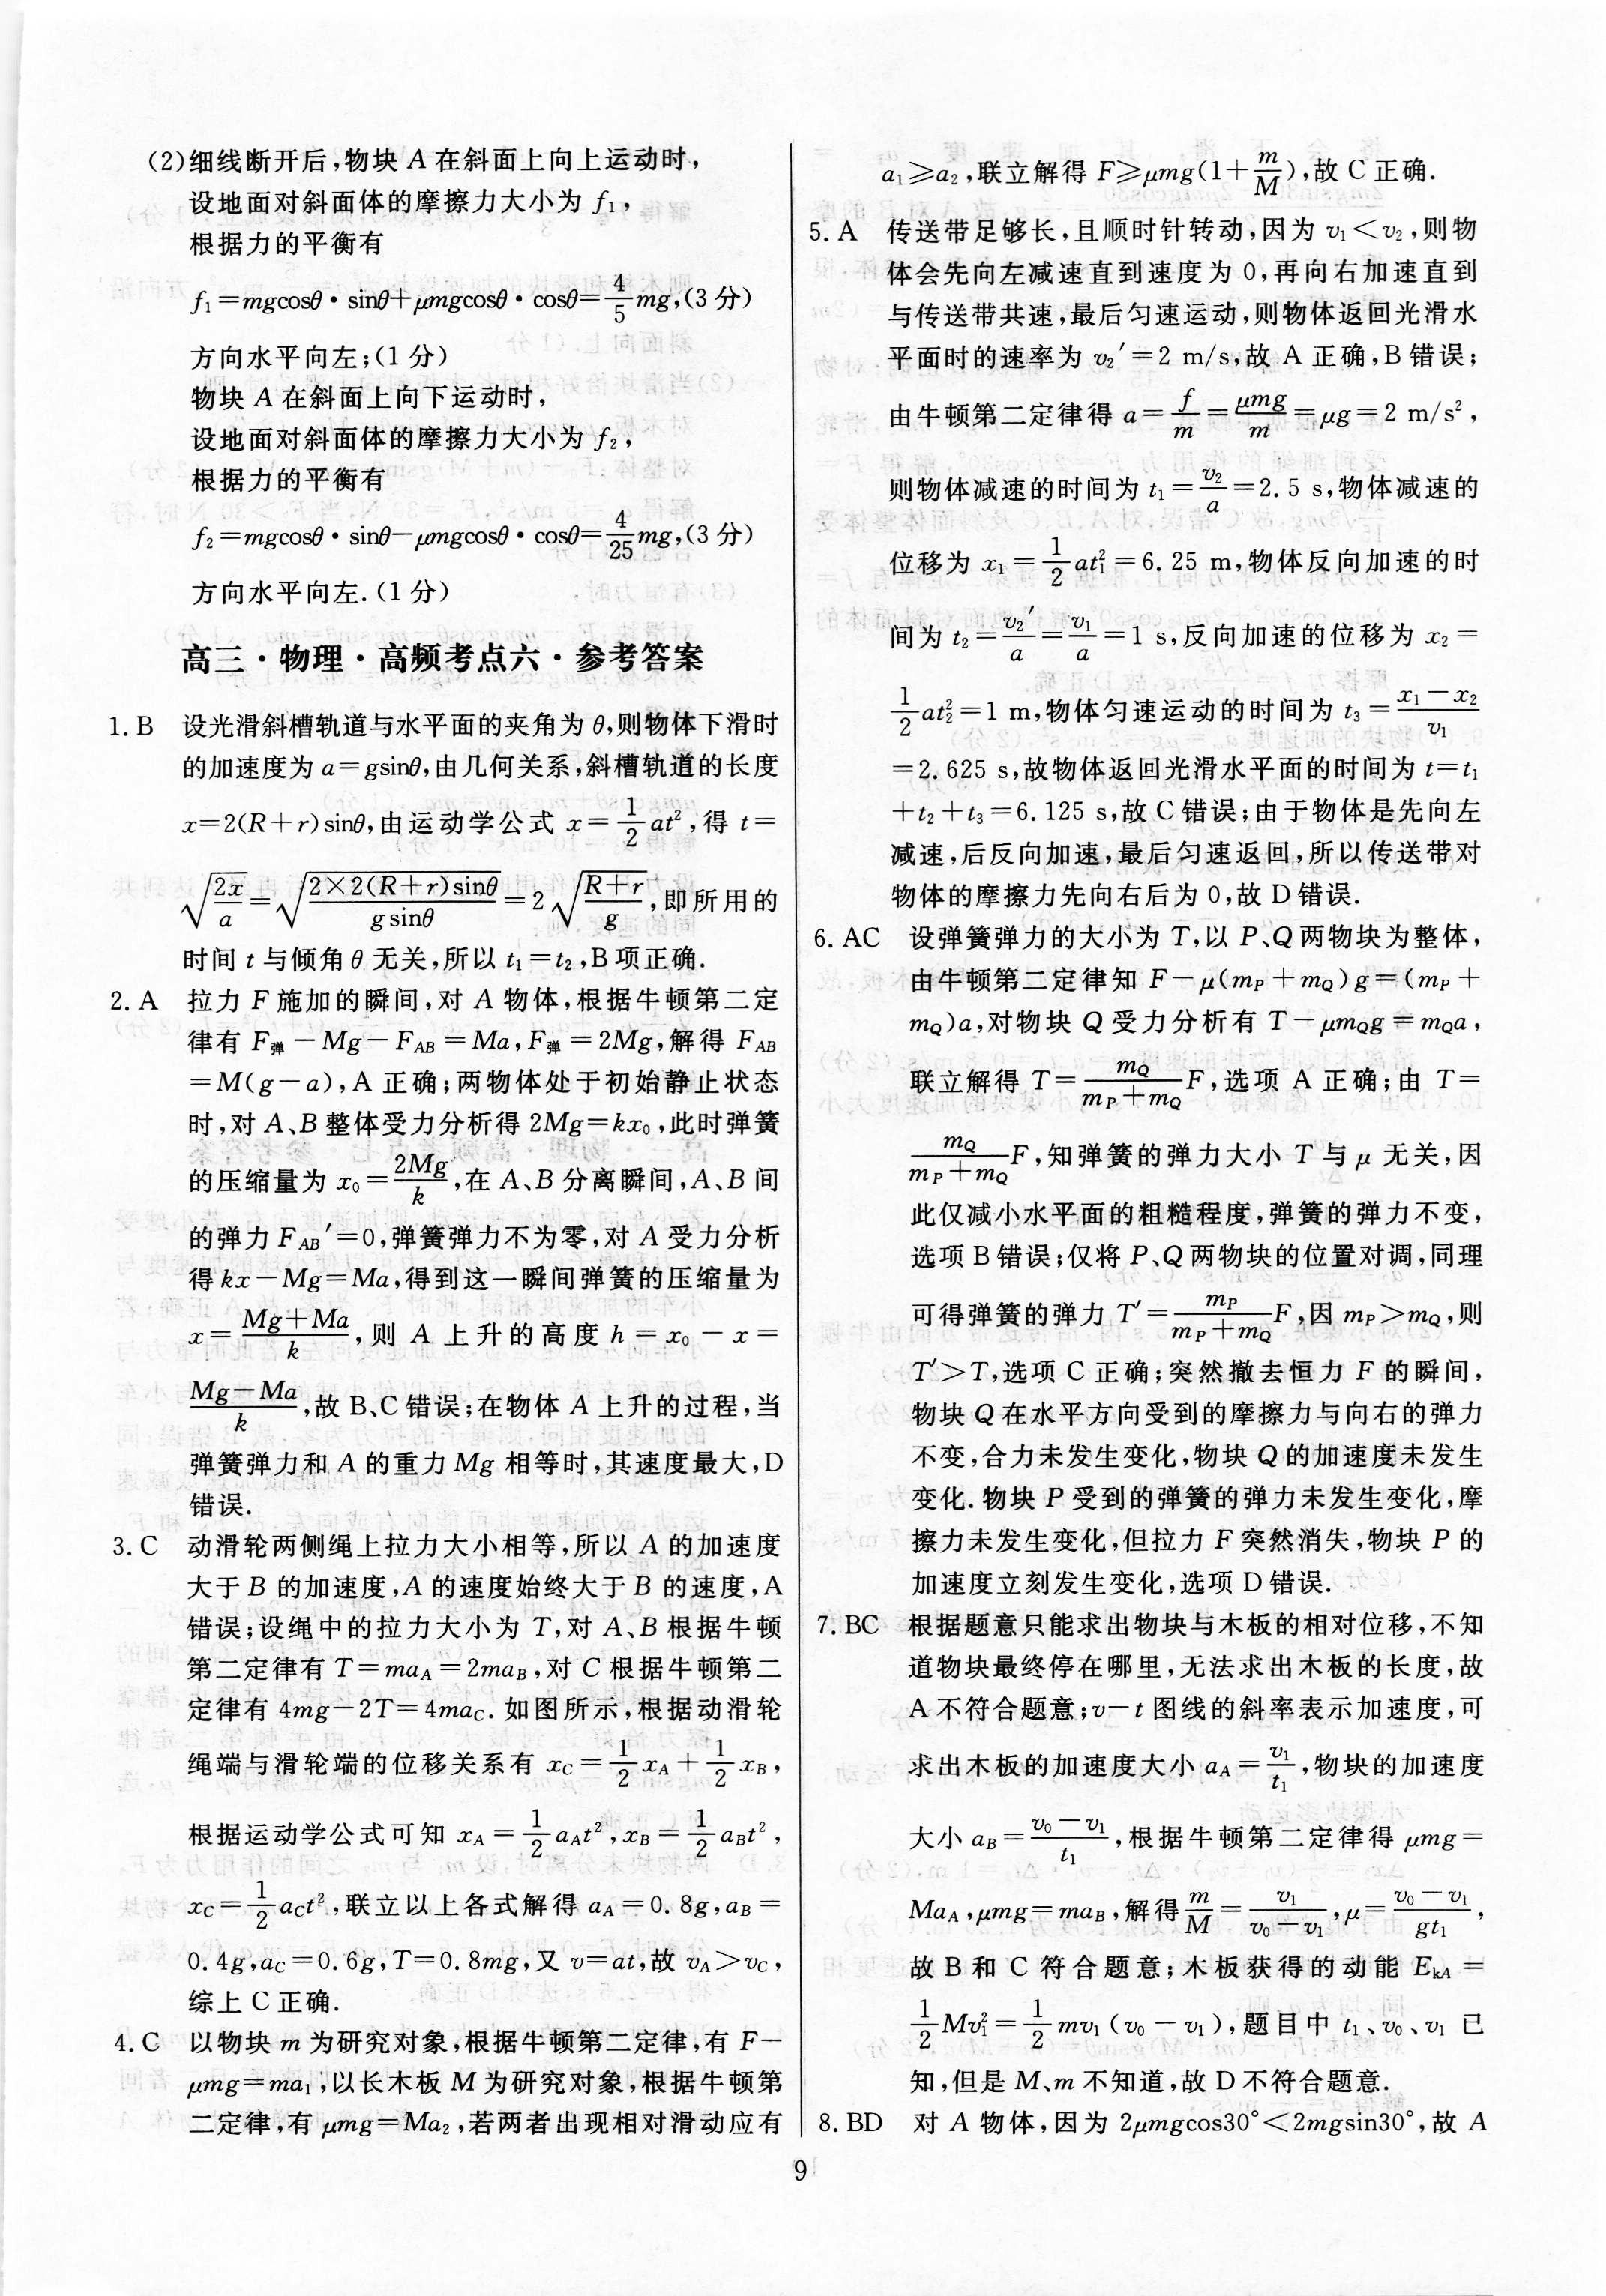 (2)细线断开后,物块 A 在斜面上向上运动时,
设地面对斜面体的摩擦力大小为 f₁,
根据力的平衡有
f₁=mgcosθ·sinθ+μmgcosθ·cosθ=4/5 mg,(3分)
方向水平向左;(1分)
物块 A 在斜面上向下运动时,
设地面对斜面体的摩擦力大小为 f₂,
根据力的平衡有
f₂=mgcosθ·sinθ−μmgcosθ·cosθ=4/25 mg,(3分)
方向水平向左.(1分)
高三·物理·高频考点六·参考答案
1. B 设光滑斜槽轨道与水平面的夹角为 θ,则物体下滑时
的加速度为 a=gsinθ,由几何关系,斜槽轨道的长度
x=2(R+r)sinθ,由运动学公式 x=1/2 at²,得 t=
√(2x/a)=√(2×2(R+r)sinθ/gsinθ)=2√((R+r)/g),即所用的
时间 t 与倾角 θ 无关,所以 t₁=t₂,B项正确.
2. A 拉力 F 施加的瞬间,对 A 物体,根据牛顿第二定
律有 F弹−Mg−F_AB=Ma,F弹=2Mg,解得 F_AB
=M(g−a),A 正确;两物体处于初始静止状态
时,对 A、B 整体受力分析得 2Mg=kx₀,此时弹簧
的压缩量为 x₀=2Mg/k,在 A、B 分离瞬间,A、B 间
的弹力 F_AB′=0,弹簧弹力不为零,对 A 受力分析
得 kx−Mg=Ma,得到这一瞬间弹簧的压缩量为
x=(Mg+Ma)/k,则 A 上升的高度 h=x₀−x=
(Mg−Ma)/k,故 B、C 错误;在物体 A 上升的过程,当
弹簧弹力和 A 的重力 Mg 相等时,其速度最大,D
错误.
3. C 动滑轮两侧绳上拉力大小相等,所以 A 的加速度
大于 B 的加速度,A 的速度始终大于 B 的速度,A
错误;设绳中的拉力大小为 T,对 A、B 根据牛顿
第二定律有 T=ma_A=2ma_B,对 C 根据牛顿第二
定律有 4mg−2T=4ma_C. 如图所示,根据动滑轮
绳端与滑轮端的位移关系有 x_C=1/2 x_A+1/2 x_B,
根据运动学公式可知 x_A=1/2 a_A t²,x_B=1/2 a_B t²,
x_C=1/2 a_C t²,联立以上各式解得 a_A=0.8g,a_B=
0.4g,a_C=0.6g,T=0.8mg,又 v=at,故 v_A>v_C,
综上 C 正确.
4. C 以物块 m 为研究对象,根据牛顿第二定律,有 F−
μmg=ma₁,以长木板 M 为研究对象,根据牛顿第
二定律,有 μmg=Ma₂,若两者出现相对滑动应有
a₁≥a₂,联立解得 F≥μmg(1+m/M),故 C 正确.
5. A 传送带足够长,且顺时针转动,因为 v₁<v₂,则物
体会先向左减速直到速度为 0,再向右加速直到
与传送带共速,最后匀速运动,则物体返回光滑水
平面时的速率为 v₂′=2 m/s,故 A 正确,B 错误;
由牛顿第二定律得 a=f/m=μmg/m=μg=2 m/s²,
则物体减速的时间为 t₁=v₂/a=2.5 s,物体减速的
位移为 x₁=1/2 at₁²=6.25 m,物体反向加速的时
间为 t₂=v₂′/a=v₁/a=1 s,反向加速的位移为 x₂=
1/2 at₂²=1 m,物体匀速运动的时间为 t₃=(x₁−x₂)/v₁
=2.625 s,故物体返回光滑水平面的时间为 t=t₁
+t₂+t₃=6.125 s,故 C 错误;由于物体是先向左
减速,后反向加速,最后匀速返回,所以传送带对
物体的摩擦力先向右后为 0,故 D 错误.
6. AC 设弹簧弹力的大小为 T,以 P、Q 两物块为整体,
由牛顿第二定律知 F−μ(m_P+m_Q)g=(m_P+
m_Q)a,对物块 Q 受力分析有 T−μm_Q g=m_Q a,
联立解得 T=m_Q/(m_P+m_Q) F,选项 A 正确;由 T=
m_Q/(m_P+m_Q) F,知弹簧的弹力大小 T 与 μ 无关,因
此仅减小水平面的粗糙程度,弹簧的弹力不变,
选项 B 错误;仅将 P、Q 两物块的位置对调,同理
可得弹簧的弹力 T′=m_P/(m_P+m_Q) F,因 m_P>m_Q,则
T′>T,选项 C 正确;突然撤去恒力 F 的瞬间,
物块 Q 在水平方向受到的摩擦力与向右的弹力
不变,合力未发生变化,物块 Q 的加速度未发生
变化. 物块 P 受到的弹簧的弹力未发生变化,摩
擦力未发生变化,但拉力 F 突然消失,物块 P 的
加速度立刻发生变化,选项 D 错误.
7. BC 根据题意只能求出物块与木板的相对位移,不知
道物块最终停在哪里,无法求出木板的长度,故
A 不符合题意;v−t 图线的斜率表示加速度,可
求出木板的加速度大小 a_A=v₁/t₁,物块的加速度
大小 a_B=(v₀−v₁)/t₁,根据牛顿第二定律得 μmg=
Ma_A,μmg=ma_B,解得 m/M=v₁/(v₀−v₁),μ=(v₀−v₁)/gt₁,
故 B 和 C 符合题意;木板获得的动能 E_kA=
1/2 Mv₁²=1/2 mv₁(v₀−v₁),题目中 t₁、v₀、v₁ 已
知,但是 M、m 不知道,故 D 不符合题意.
8. BD 对 A 物体,因为 2μmgcos30°<2mgsin30°,故 A
9